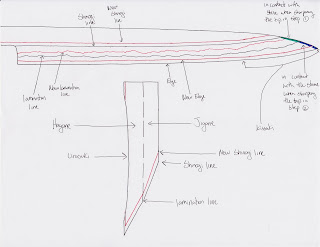 Shinogi
line
New
Shinogi
line
In contact with
stone when sharpening
the tip in Step ①
Lamination
line
New lamination
line
Edge
New Edge
In contact
with the stone
when sharpening
the tip in
Step ②
Kissaki
Hagane
Jigane
Uraoshi
New Shinogi line
Shinogi line
lamination line